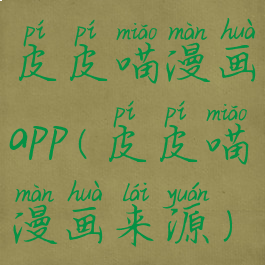 pí pí miāo màn huà
皮皮喵漫画
pí pí miāo
app(皮皮喵
màn huà lái yuán
漫画来源)